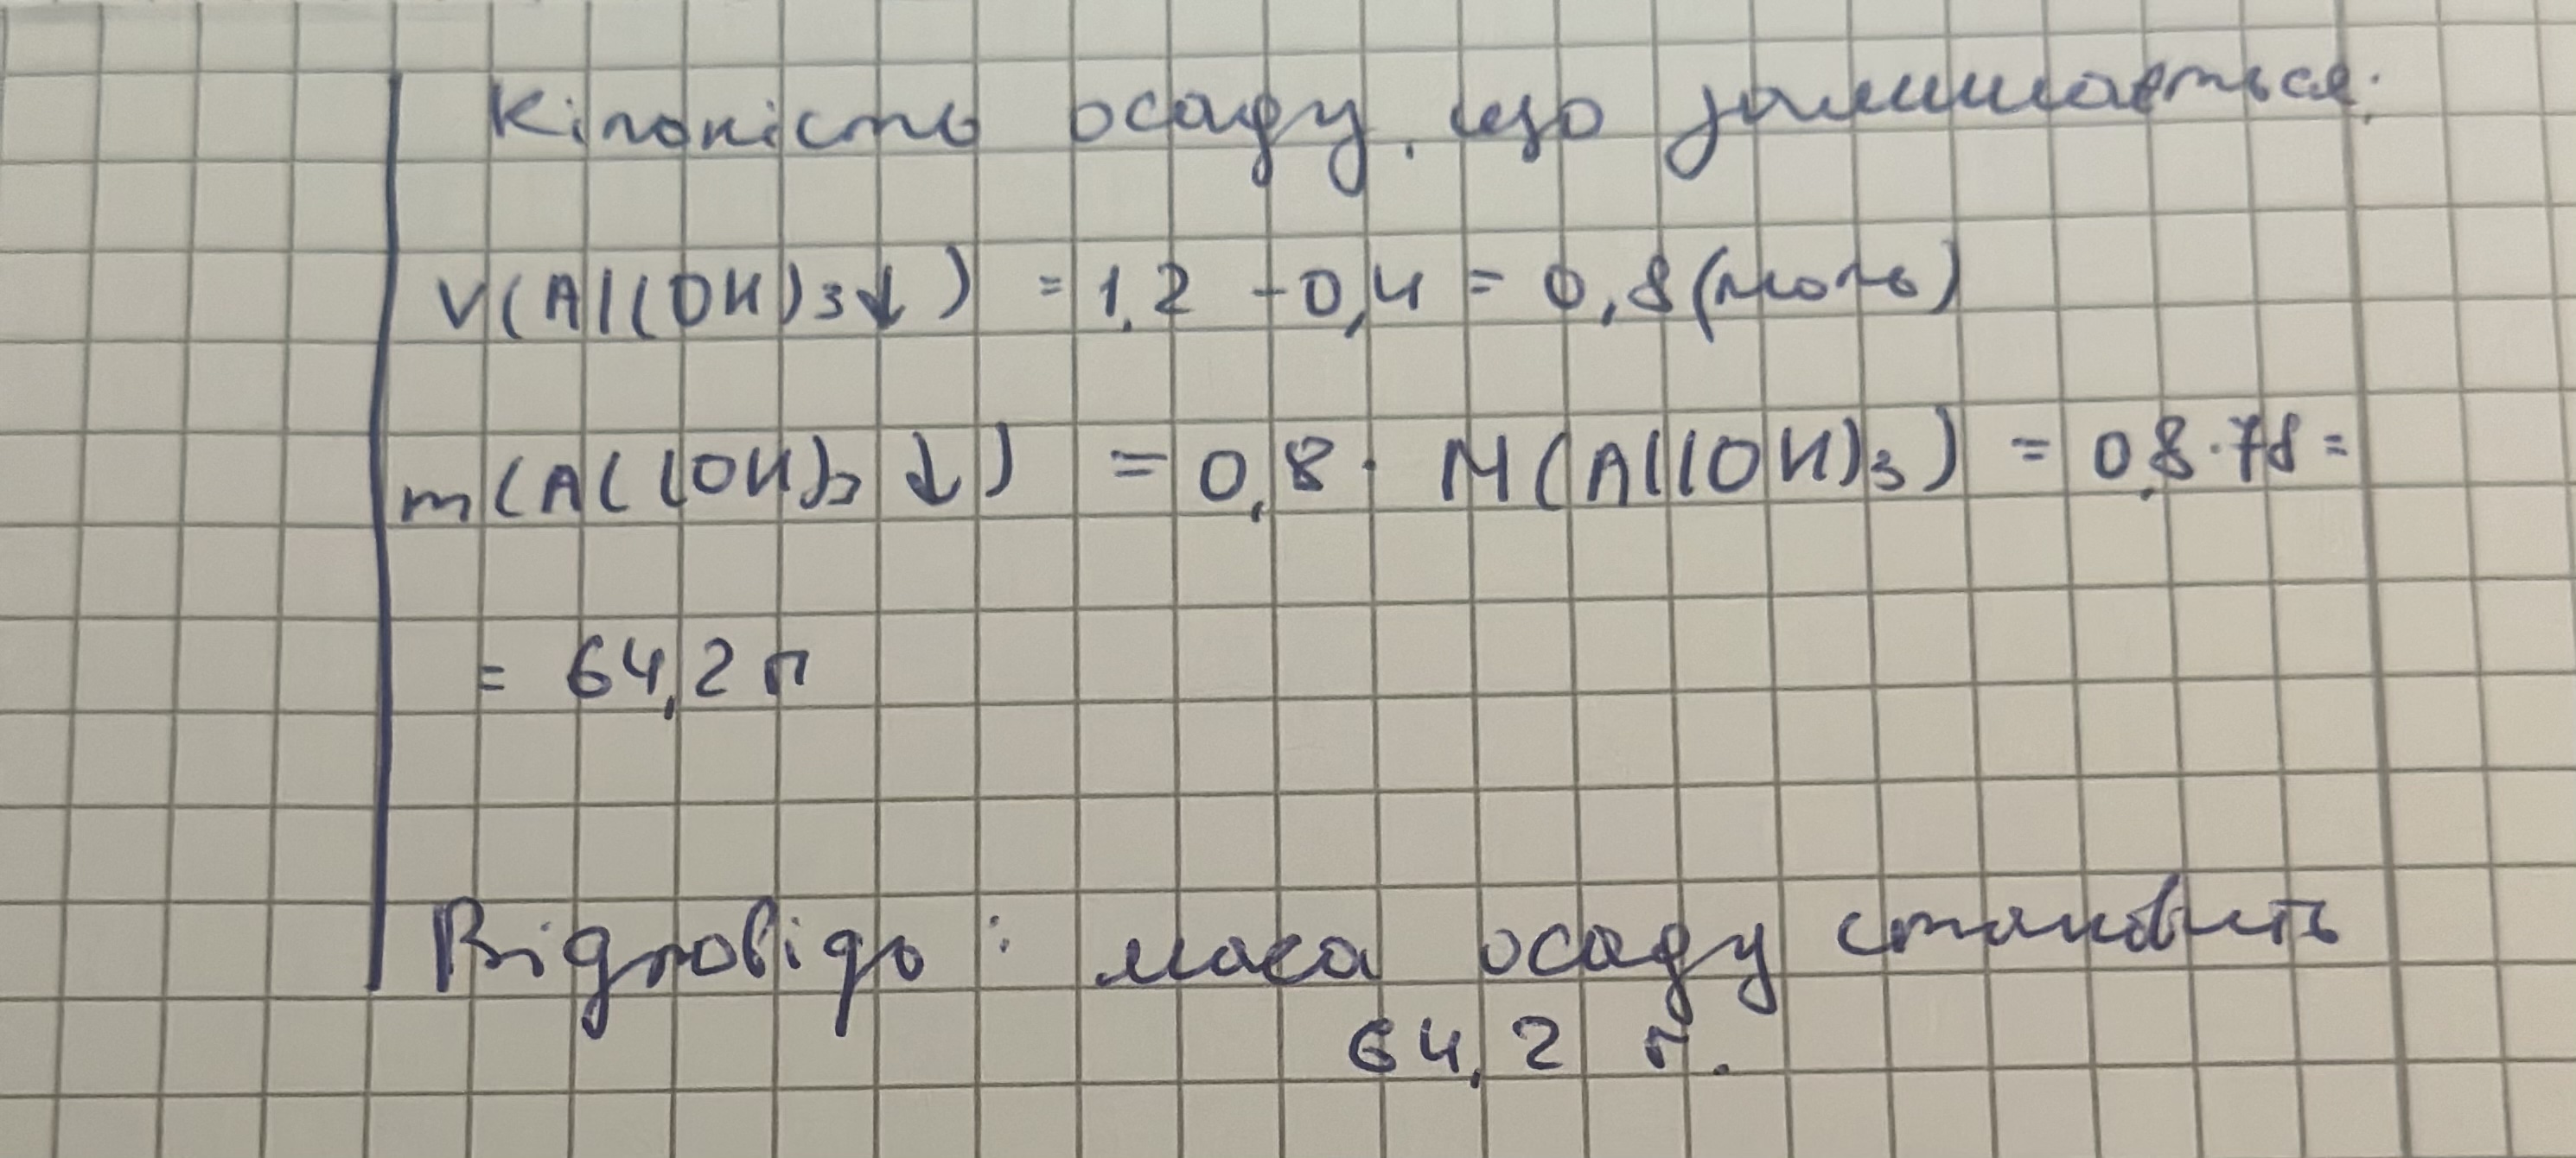 Кількість осаду, що залишається:
ν(Al(OH)3↓) = 1,2 - 0,4 = 0,8 (моль)
m(Al(OH)3↓) = 0,8 · M(Al(OH)3) = 0,8·78 =
= 64,2 г
Відповідь: маса осаду становить
64,2 г.